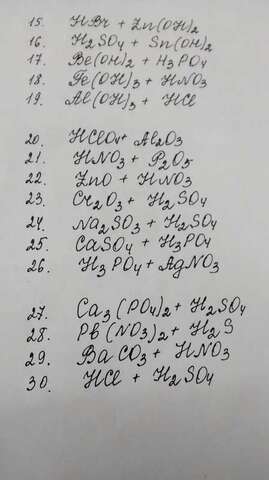 15. HBr + Zn(OH)2
16. H2SO4 + Sn(OH)2
17. Be(OH)2 + H3PO4
18. Fe(OH)3 + HNO3
19. Al(OH)3 + HCl
20. HClO4 + Al2O3
21. HNO3 + P2O5
22. ZnO + HNO3
23. Cr2O3 + H2SO4
24. Na2SO3 + H2SO4
25. CaSO4 + H3PO4
26. H3PO4 + AgNO3
27. Ca3(PO4)2 + H2SO4
28. Pb(NO3)2 + H2S
29. BaCO3 + HNO3
30. HCl + H2SO4